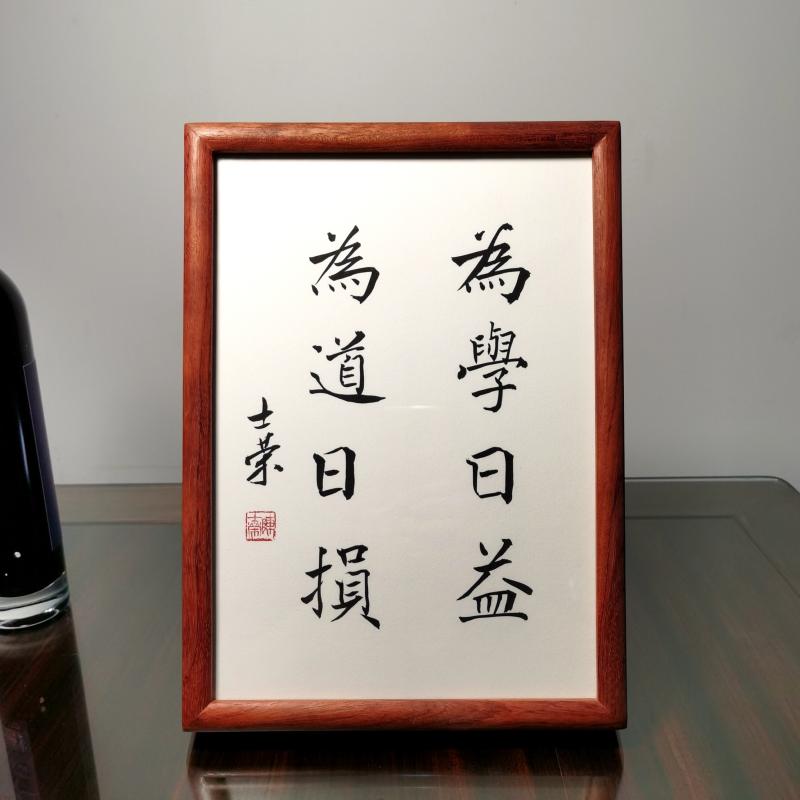 為學日益
為道日損
士荣